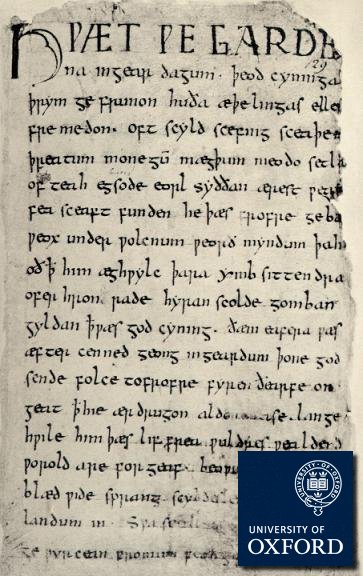 HǷÆT ǷE GARDE
na ingear dagum. þeod cyninga
þrym ge frunon huða æþelingas elle
fremedon. oft scyld scefing sceaþe
þreatum monegū mægþum meodo setla
of teah egsode eorl syððan ærest ƿear
fea sceaft funden he þæs frofre geba
ƿeox under ƿolcnum ƿeorð myndum þah
oð ꝥ him æghƿylc þara ymb sittendra
ofer hron rade hyran scolde gomban
gyldan ꝥ ƿæs god cyning. ðæm eafera ƿæs
æfter cenned geong ingeardum þone god
sende folce tofrofre fyren ðearfe on
geat ꝥ hie ær drugon aldor ase. lange
hƿile him þæs liffrea ƿuldres ƿealdend
ƿorold are forgeaf.
blæd ƿide sprang
landum in. Sƿa sceal
ge ƿyrcean fromum
UNIVERSITY OF
OXFORD